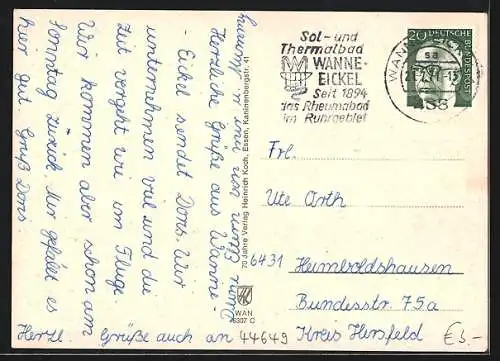 Herzliche Grüße aus Wanne-
Eickel sendet Doris. Wir
unternehmen viel und die
Zeit vergeht wie im Fluge.
Wir kommen aber schon am
Sonntag zurück. Mir gefällt es
hier gut. Gruß Doris.
Herzl. Grüße auch an
70 Jahre Verlag Heinrich Koch, Essen, Kaninenbergstr. 41
WAN
6307 C
Sol- und
Thermalbad
WANNE-
EICKEL
Seit 1894
das Rheumabad
im Ruhrgebiet
WANNE-EICKEL
sa
20 DEUTSCHE BUNDESPOST
Frl.
Ute Orth
6431 Heimboldshausen
Bundesstr. 75a
Kreis Hersfeld
44649
€3.-